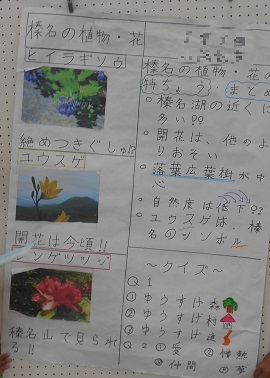 榛名の植物・花
ヒイラギソウ
絶めつきぐしゅ!?
ユウスゲ
開花は今頃!!
榛名山で見られる!!
榛名の植物 花の
特ちょう・まとめ
○榛名湖の近くに
多い??
○開花は、他のよ
りおそい
○落葉広葉樹が中
心
○自然度は低下??
○ユウスゲは、榛
名のシンボル
〜クイズ〜
Q1
①ゆうすげ森
②ゆうすげ村
③ゆうすげ道
Q2 ①愛
②情熱
③仲間